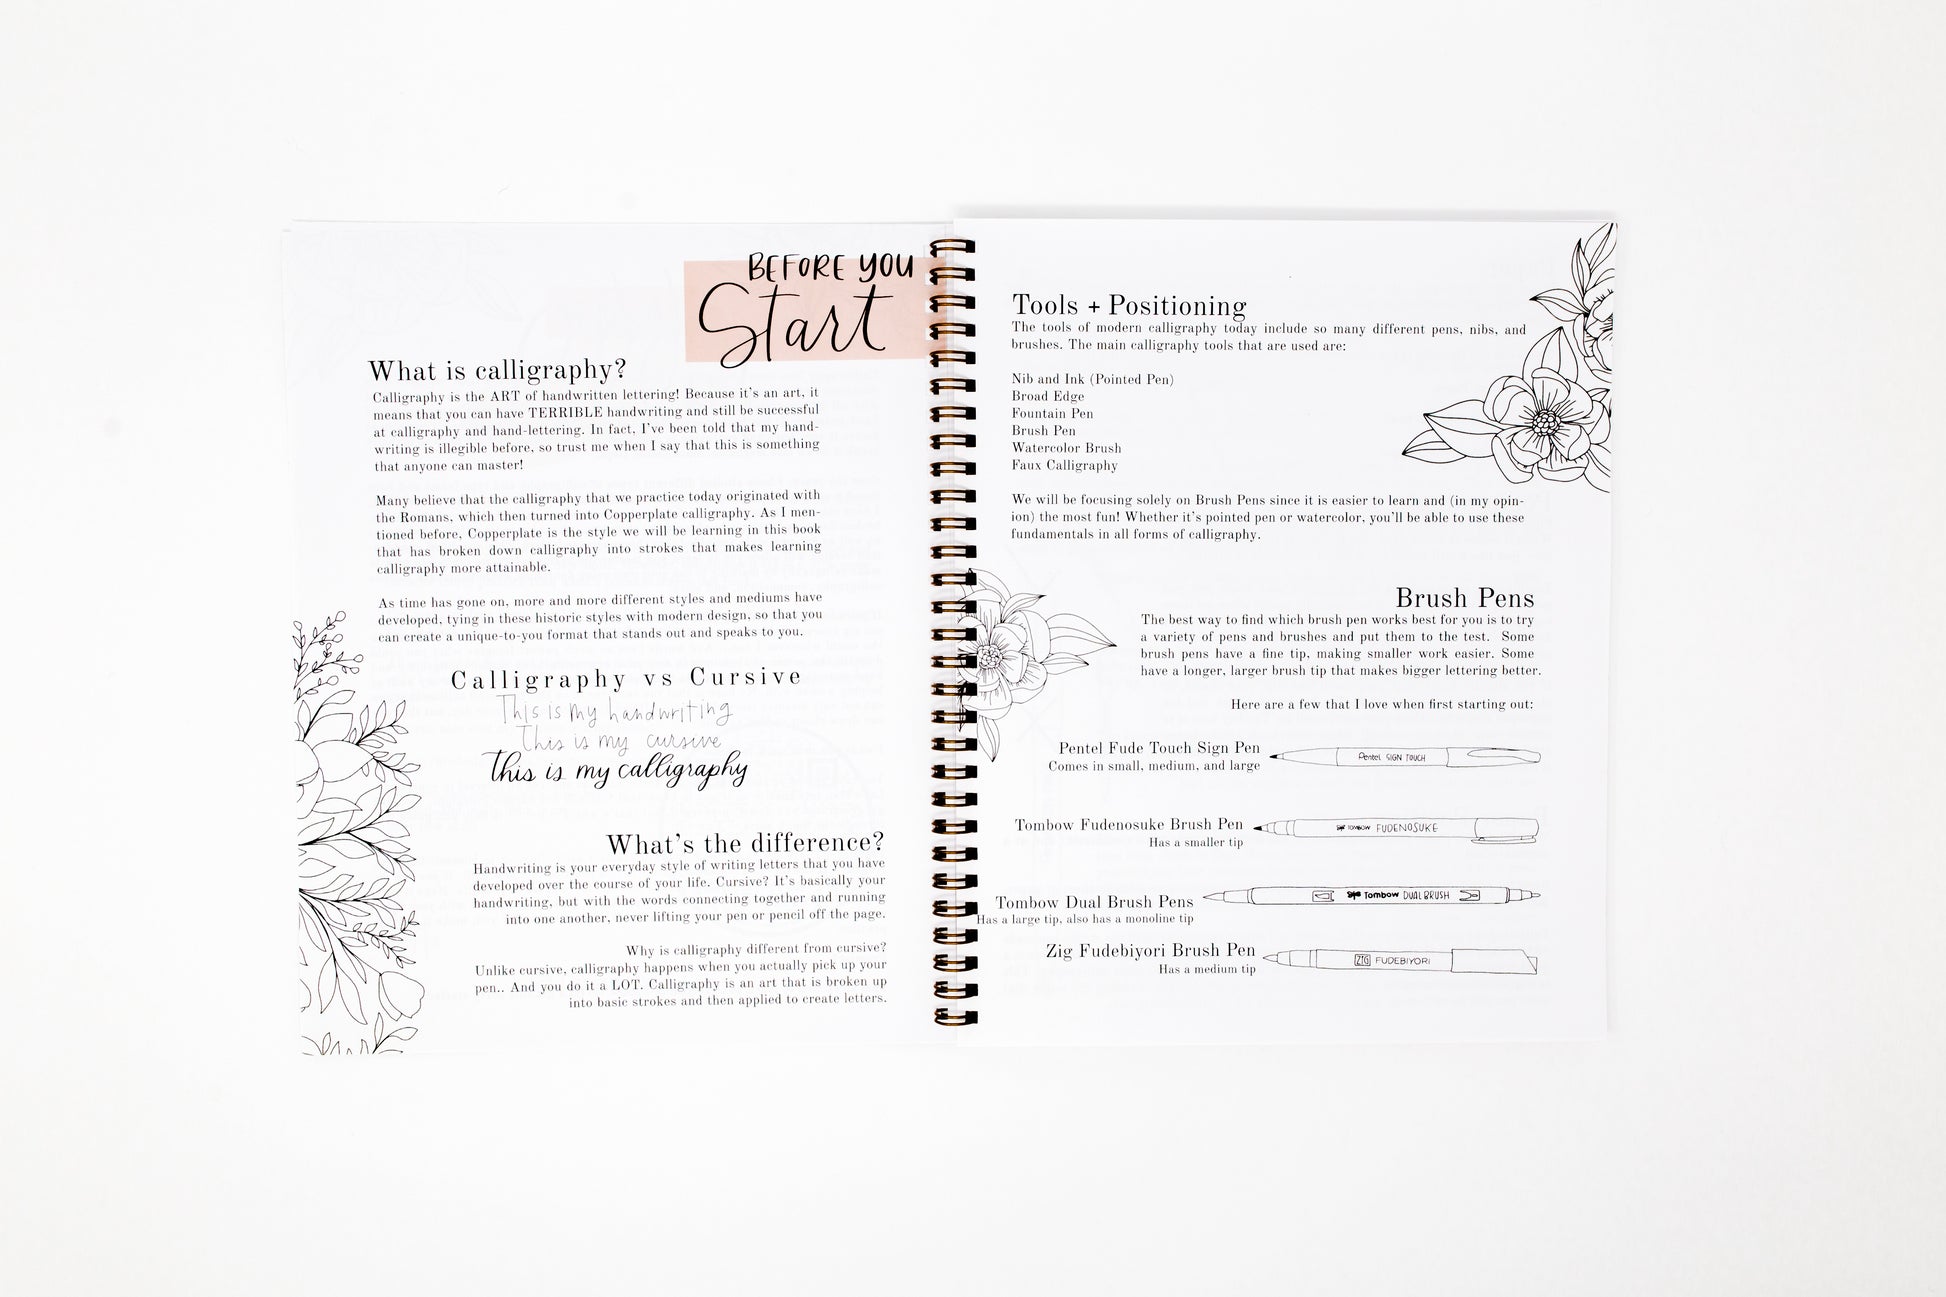 BEFORE YOU
Start
What is calligraphy?
Calligraphy is the ART of handwritten lettering! Because it's an art, it
means that you can have TERRIBLE handwriting and still be successful
at calligraphy and hand-lettering. In fact, I've been told that my hand-
writing is illegible before, so trust me when I say that this is something
that anyone can master!
Many believe that the calligraphy that we practice today originated with
the Romans, which then turned into Copperplate calligraphy. As I men-
tioned before, Copperplate is the style we will be learning in this book
that has broken down calligraphy into strokes that makes learning
calligraphy more attainable.
As time has gone on, more and more different styles and mediums have
developed, tying in these historic styles with modern design, so that you
can create a unique-to-you format that stands out and speaks to you.
Calligraphy vs Cursive
This is my handwriting
This is my cursive
this is my calligraphy
What's the difference?
Handwriting is your everyday style of writing letters that you have
developed over the course of your life. Cursive? It's basically your
handwriting, but with the words connecting together and running
into one another, never lifting your pen or pencil off the page.
Why is calligraphy different from cursive?
Unlike cursive, calligraphy happens when you actually pick up your
pen.. And you do it a LOT. Calligraphy is an art that is broken up
into basic strokes and then applied to create letters.
Tools + Positioning
The tools of modern calligraphy today include so many different pens, nibs, and
brushes. The main calligraphy tools that are used are:
Nib and Ink (Pointed Pen)
Broad Edge
Fountain Pen
Brush Pen
Watercolor Brush
Faux Calligraphy
We will be focusing solely on Brush Pens since it is easier to learn and (in my opin-
ion) the most fun! Whether it's pointed pen or watercolor, you'll be able to use these
fundamentals in all forms of calligraphy.
Brush Pens
The best way to find which brush pen works best for you is to try
a variety of pens and brushes and put them to the test. Some
brush pens have a fine tip, making smaller work easier. Some
have a longer, larger brush tip that makes bigger lettering better.
Here are a few that I love when first starting out:
Pentel Fude Touch Sign Pen
Comes in small, medium, and large
Pentel SIGN TOUCH
Tombow Fudenosuke Brush Pen
Has a smaller tip
TOMBOW FUDENOSUKE
Tombow Dual Brush Pens
Has a large tip, also has a monoline tip
Tombow DUAL BRUSH
Zig Fudebiyori Brush Pen
Has a medium tip
ZIG FUDEBIYORI